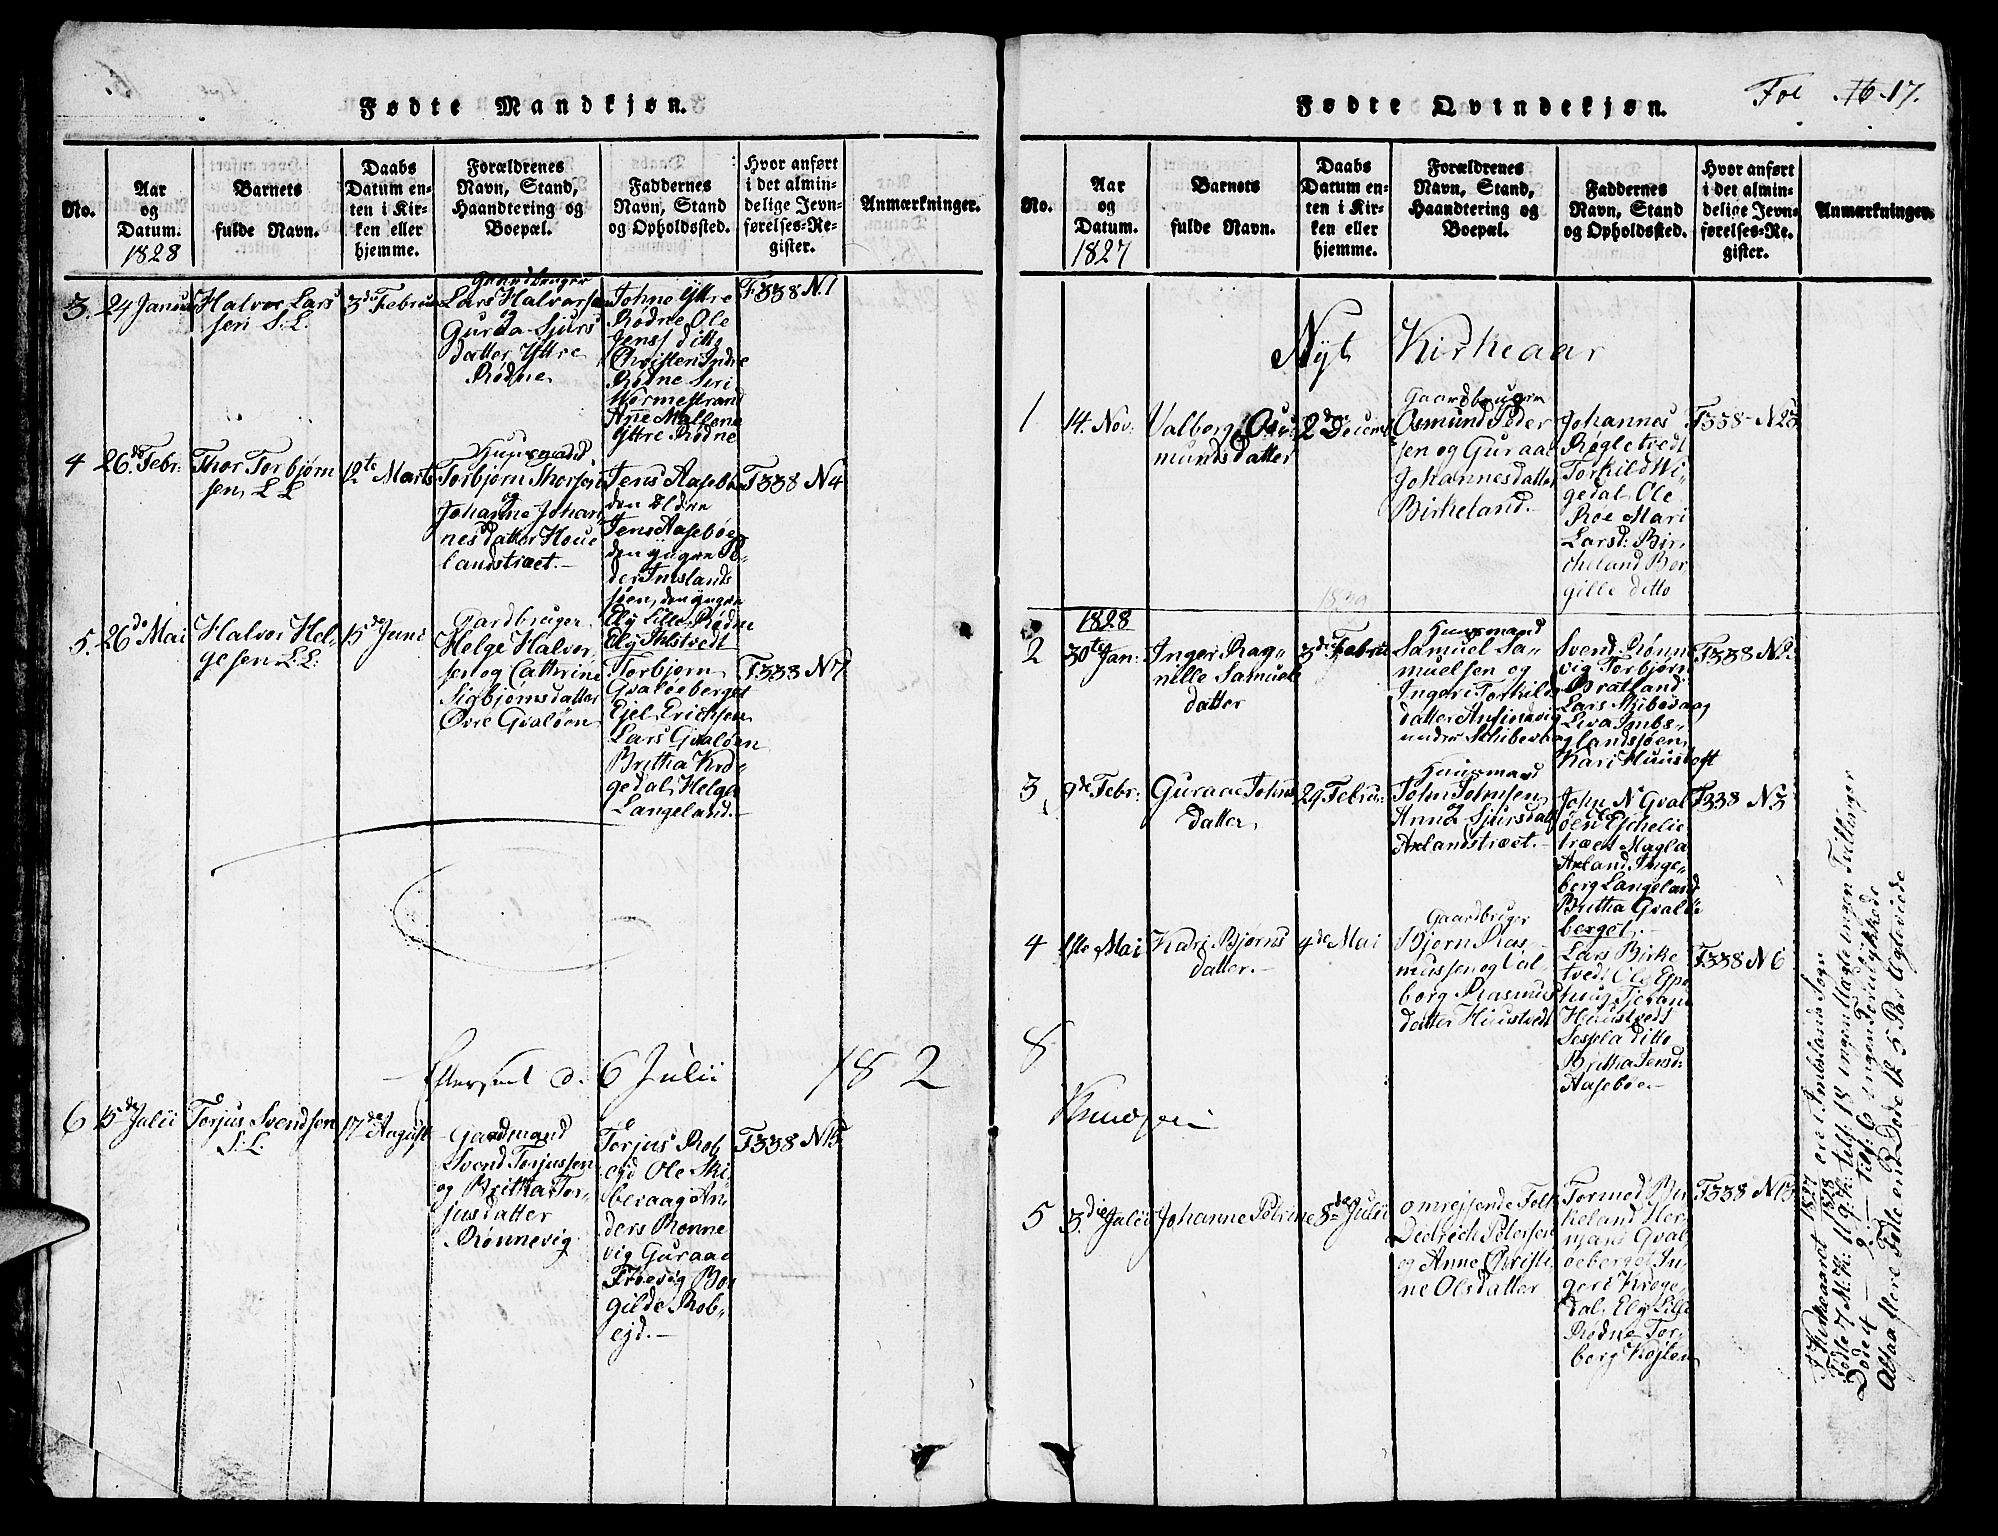 Fødte Mandkjøn.
No.
Aar
og
Datum.
1828
Barnets
fulde Navn.
Daabs
Datum en-
ten i Kir-
ken eller
hjemme.
Forældrenes
Navn, Stand,
Haandtering og
Boepæl.
Faddernes
Navn, Stand
og Opholdssted.
Hvor anført
i det almin-
delige Jevn-
førelses-Re-
gister.
Anmærkninger.
3.
24 Januar
Halvor Lars
sen S. L.
3de Februar
Gaardbruger
Lars Halvorsen
og
Guroa Sjurs
datter, Yttre
Rødne
Johne Yttre
Rødne Ole
Jens ditto
Christen Indre
Rødne Siri
Wormestrand
Anne Mallene
Yttre Rødne
F338 N.1
4
26de Febr:
Thor Torbjørn
sen L L
12te Marts
Huusmand
Torbjørn Thorsen
og
Johanne Johan
nesdatter Houe
landstræet.-
Jens Aasebøe
den Eldre
Jens Aasebøe
den yngre Pe
der Imslands
søen, den yngre
Ely Lille Rødne
Ely Ahlstvedt
F338 N4
5.
26de Mai
Halvor Hel-
gesen L.L:
15de Juni
Gardbruger
Helge Halvor
sen og Cathrine
Sigbjørnsdatter
Øvre Gvaløen
Torbjørn
Gvaløeberget
Ejel Ericksen
Lars Gvaløen
Britha Kro-
gedal, Helga
Langeland.-
F338 N7
Efterseet d. 6 Julii 182
6
15de Julii
Torjus Svendsen
L.L.
17de August
Gardmand
Svend Torjussen
og Britha Tor-
jusdatter
Rønnevig
Torjus Rob
ejd Ole Ski
bevaag An-
ders Rønne
vig Guraae
Frøevig Bor
gilde Rob-
ejd.-
F338 N15
Fødte Qvindekjøn.
Fol 16 17.
No.
Aar
og
Datum.
1827
Barnets
fulde Navn.
Daabs
Datum en-
ten i Kir-
ken eller
hjemme.
Forældrenes
Navn, Stand,
Haandtering og
Boepæl.
Faddernes
Navn, Stand
og Opholdssted.
Hvor anført
i det almin-
delige Jevn-
førelses-Re-
gister.
Anmærkninger.
Nyt Kirkeaar
1
14. Nov:
Valborg Os-
mundsdatter
2de Decemb
Gaardbrugere
Osmund Peder
sen og Guraae
Johannesdatter
Birkeland.-
Johannes
Røgletvedt
Torkild Wi-
gedal, Ole
Røe Mari
Larsd: Bir
cheland Bor
gille ditto
F338 N23
1828
2
30te Jan:
Inger Rag-
nille Samuels
datter
3de Februar
Huusmand
Samuel Sa-
muelsen og
Ingeri Torkilds
datter Ansjonevig
under Schibevaag
Svend Rønne
vig Torbjørn
Bratland
Lars Skibevaag
Liva Imbs-
landsjøen
Kari Huustoft
F338 N2
3
9de Febr:
Guraae Johns
datter
29 Februar
Huusmand
John Johnsen
og
Anna Sjursdatt
Axlandstræet.-
John N Gval
øen Ole Eschelie
træet Magla
Axland, Inge-
berg Langeland
Britha Gvaløe
berget.-
F338 N3
4
1ste Mai
Kari Bjørns
datter.-
4de Mai
Gaardbruger
Bjørn Ras-
mussen og Val-
borg Rasmus
datter Huustvedt
Lars Birke
tvedt Ole Espe
houg Tjeran
Huustvedt
Sespela ditto
Britha Jensd:
Aasebøe-
F338 N6
8
Knudsen
5
3die Julii
Johanne Petrine
8de Julii
omrejsende Folk
Diedrich Petersen
og Anne Christi
ne Olsdatter
Tormod Bir
keland Her
mans Gval
øeberget In-
geri Kroge-
dal, Ely Lille
Rødne Tor-
berg Kojlen
F338 N13
I Kirkeaaret 1827 ere i Imbslands Sogn
1828
Fødte 7 M.K: 11 Q.K: tilst: 18 ingen Uægte ingen Tvillinger
Døde 4 - 2 - tils: 6 - ingen Forulykkede
Altsaa flere Fødte end Døde 12 5 Par Ægteviede